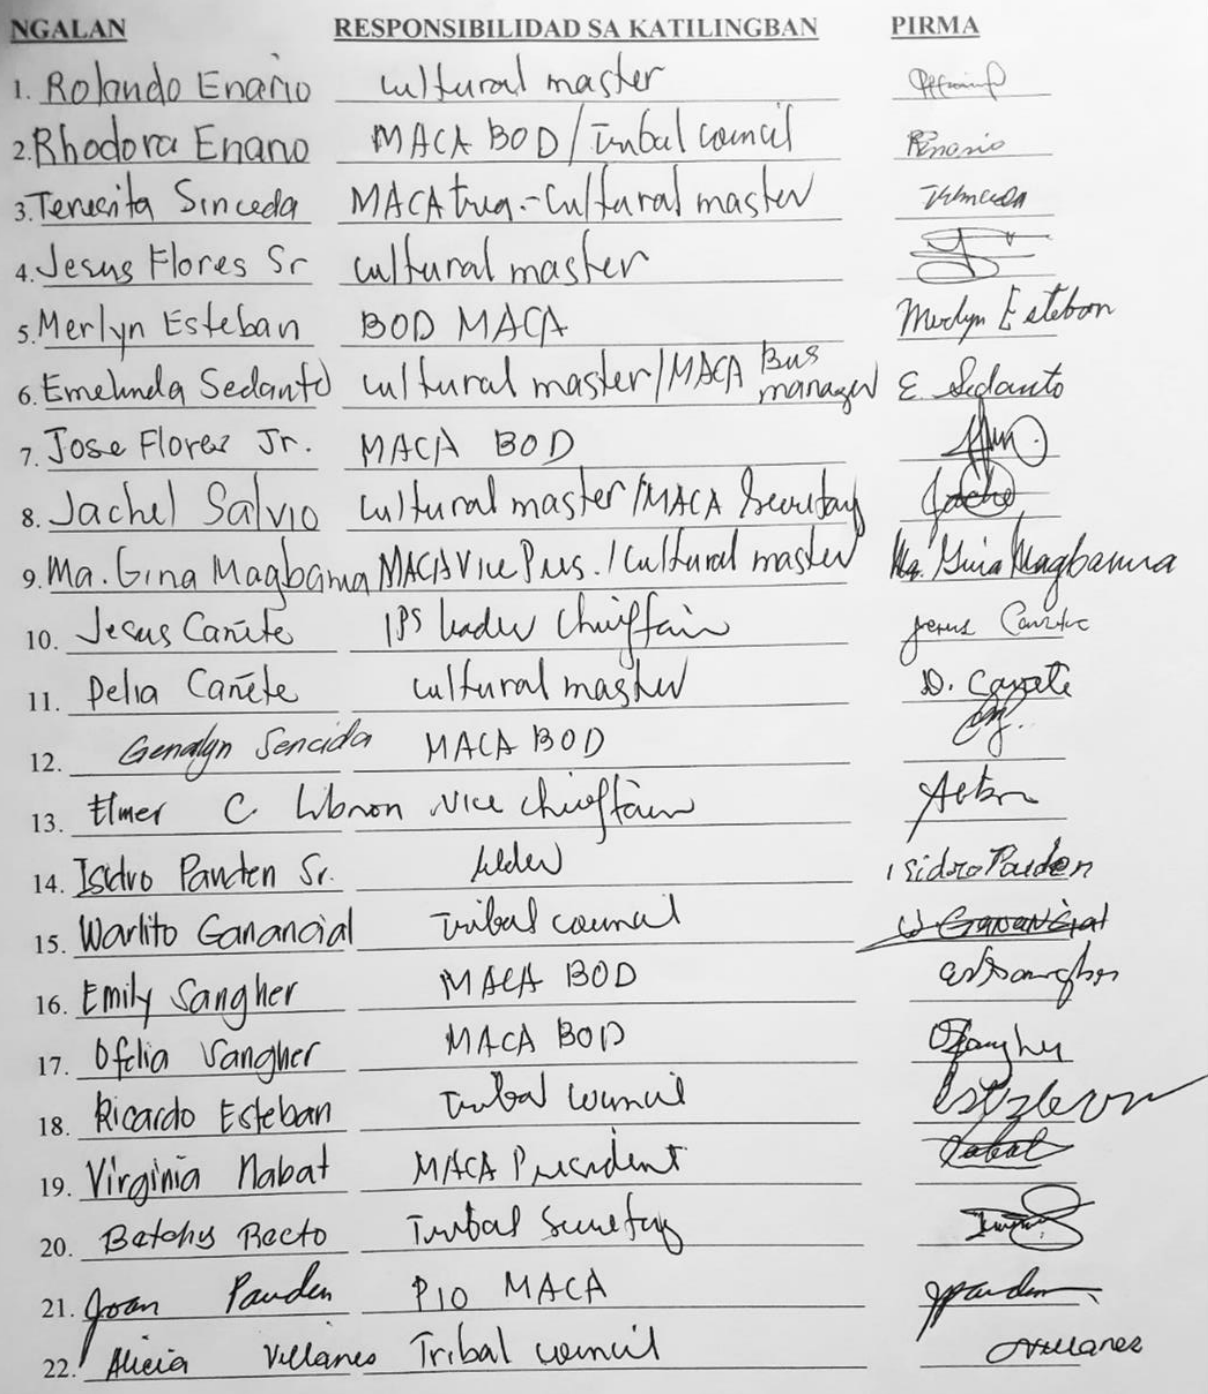 NGALAN RESPONSIBILIDAD SA KATILINGBAN PIRMA
1. Rolando Enaño cultural master
2. Rhodora Enano MACA BOD/Tribal council
3. Teresita Sinceda MACA trea.-Cultural master
4. Jesus Flores Sr cultural master
5. Merlyn Esteban BOD MACA Merlyn Esteban
6. Emelinda Sedanto cultural master/MACA Bus manager E. Sedanto
7. Jose Flores Jr. MACA BOD
8. Jachel Salvio cultural master/MACA Secretary
9. Ma. Gina Magbanua MACA Vice Pres. / Cultural master Ma. Gina Magbanua
10. Jesus Cañete IPS leader Chieftain Jesus Cañete
11. Delia Cañete cultural master D. Cañete
12. Genalyn Sencida MACA BOD
13. Elmer C Libron Vice Chieftain
14. Isidro Panden Sr. Isidro Panden
15. Warlito Ganancial Tribal council W Ganancial
16. Emily Sangher MACA BOD
17. Ofelia Sangher MACA BOD
18. Ricardo Esteban Tribal council
19. Virginia Nabat MACA President
20. Betchy Recto Tribal Secretary
21. Joan Panden PIO MACA
22. Alicia Villanes Tribal council